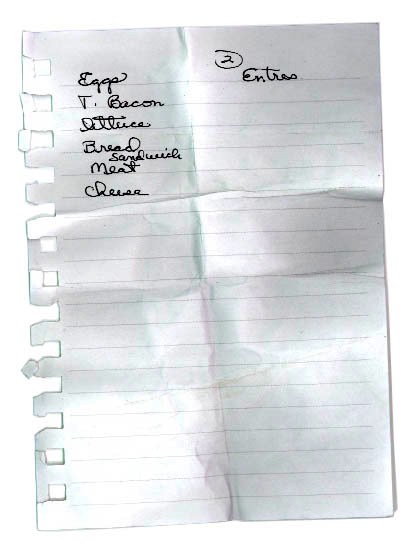 Eggs
T. Bacon
Lettuce
Bread
Sandwich
Meat
Cheese
2
Entres